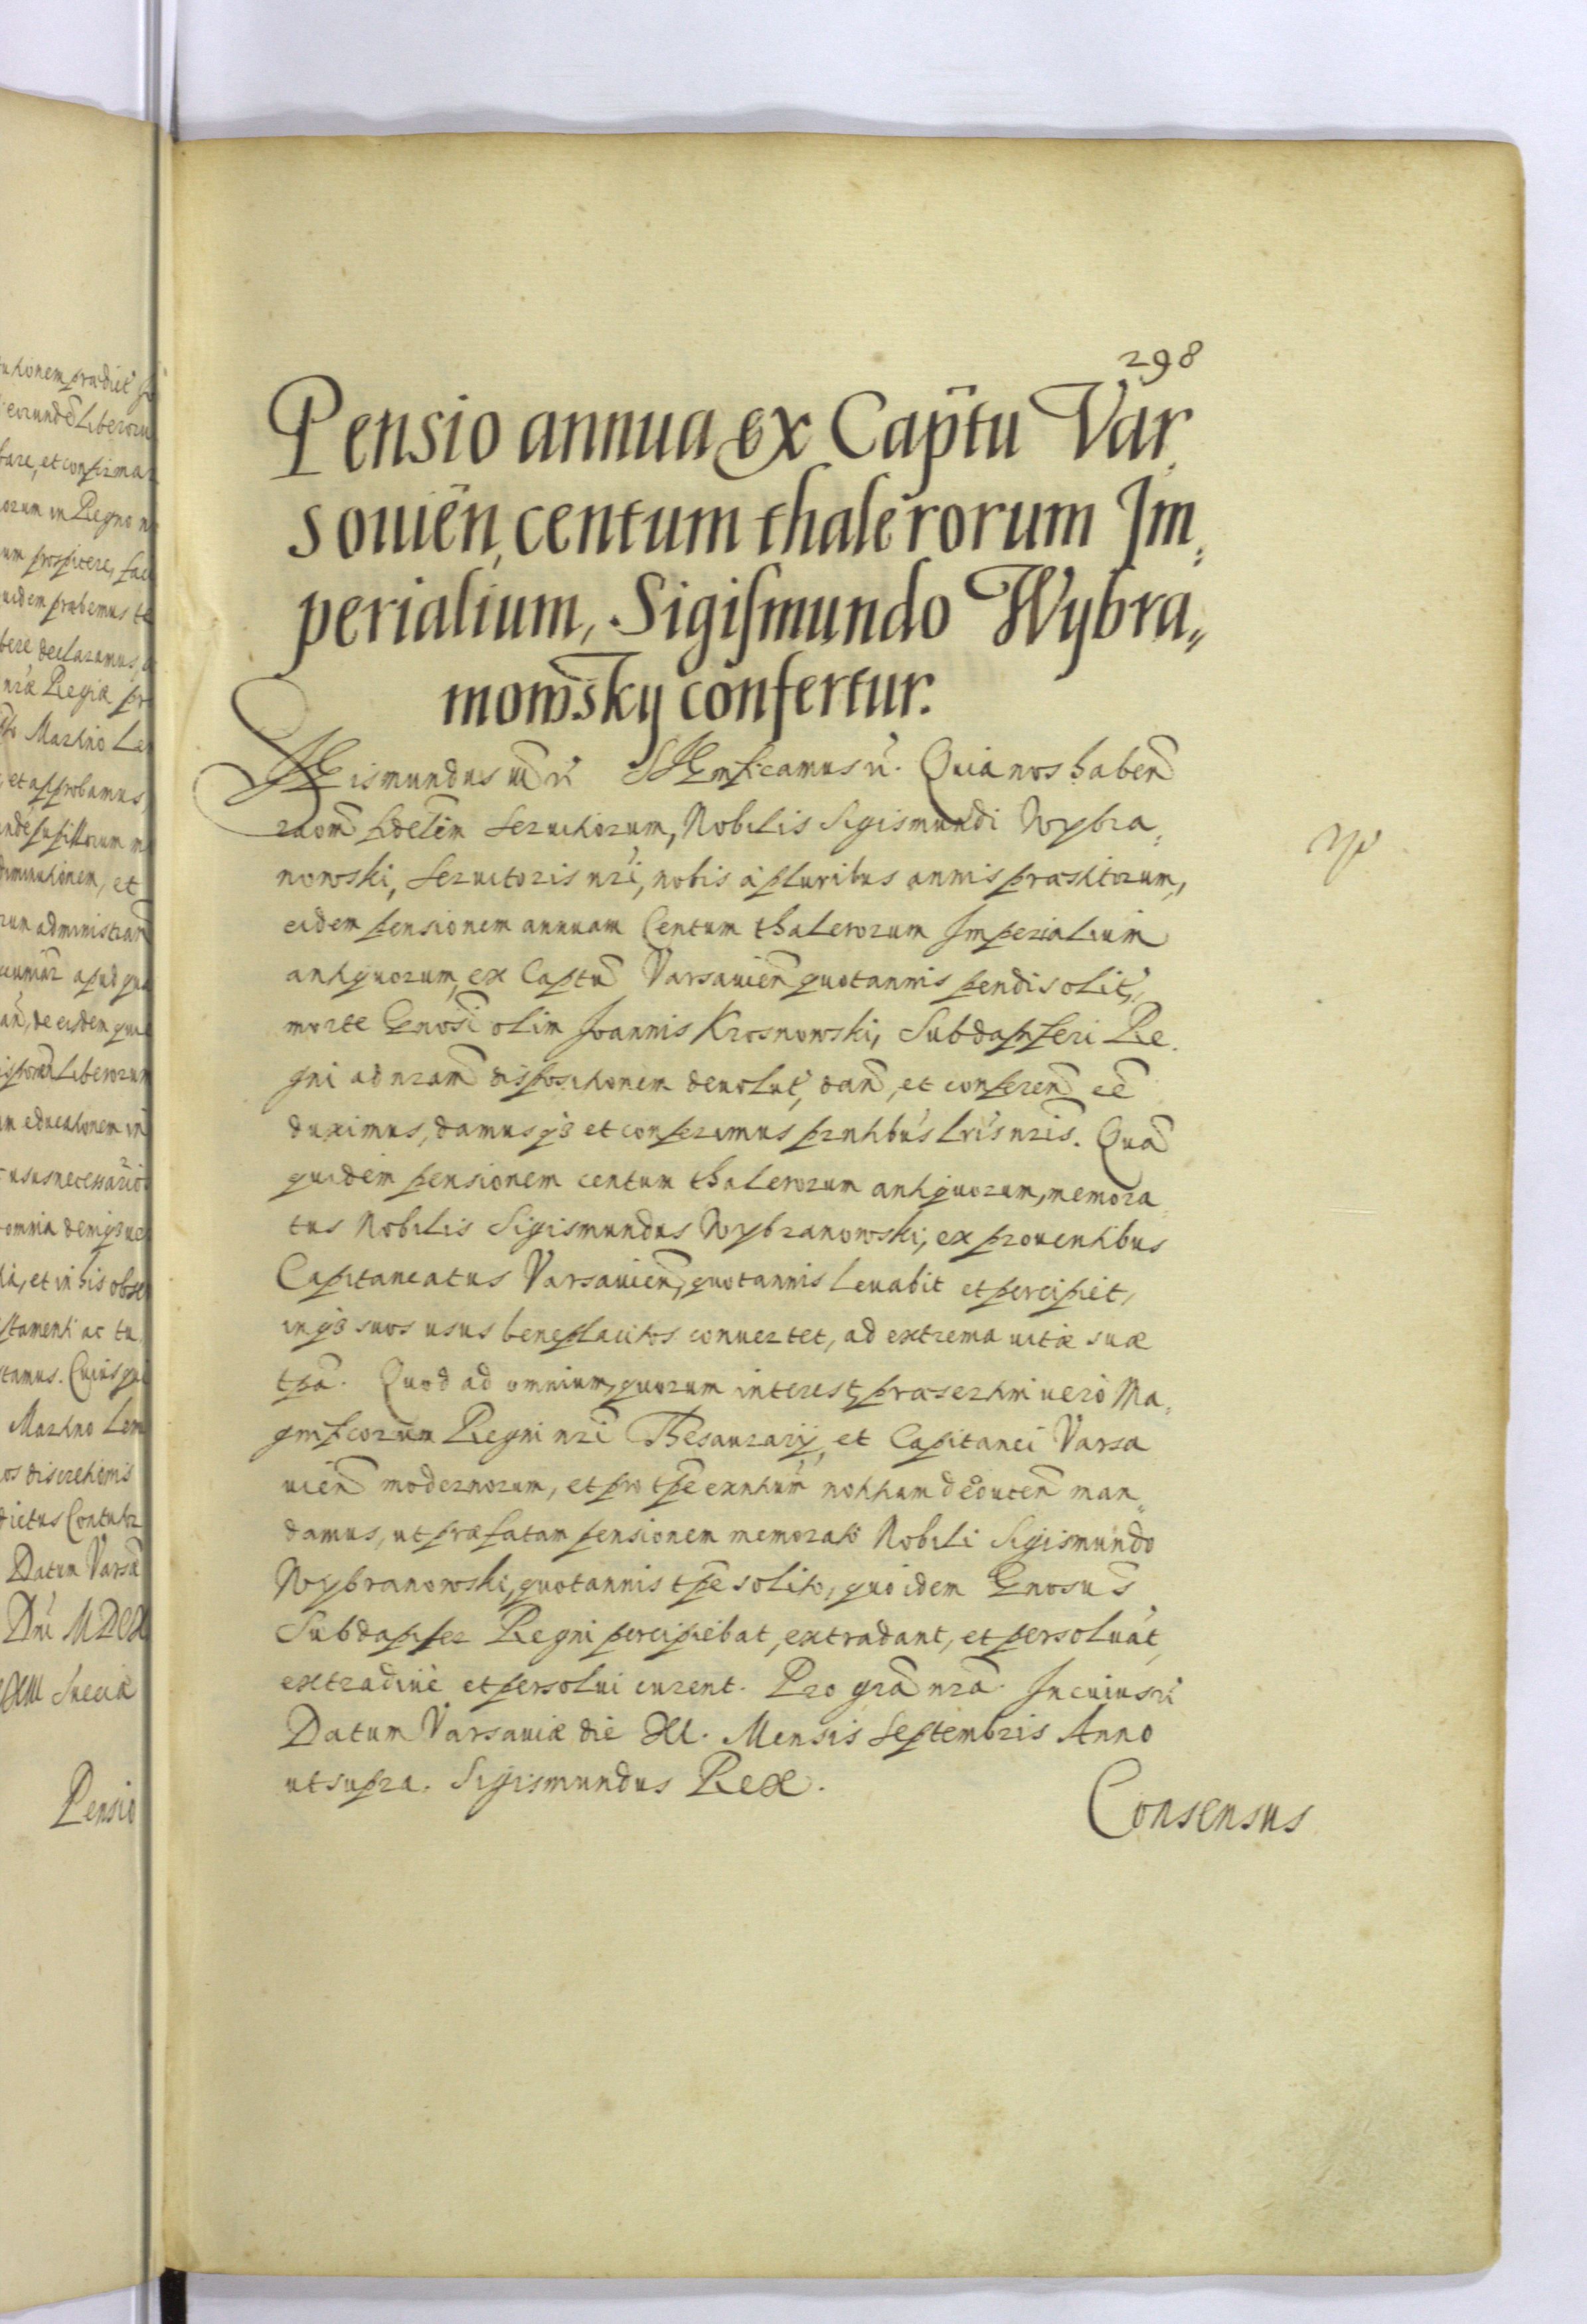 298
Pensio annua ex Captũ Var,
souień, centum thalerorum Im,
perialium, Sigismundo Wybra,,
nowsky confertur.
Sigismundus III rč Significamus rč. Quia nos haben̄
ra̅om̄ fideliū seruitiorum, Nobilis Sigismundi Wybra,
nowski, seruitoris nrĩ, nobis à pluribus annis præstitorum,
eidem pensionem annuam Centum thalerorum Imperialium
antiquorum, ex Captũ Varsauień quotannis pendi solit̃,
morte Gnosi olim Joannis Krosnowski, Subdapiferi Re,
gni ad nram̄ dispositionem deuolut̃, dan̄, et conferen̄ eē
duximus, damusq3 et conferimus prntibus lrĩs nrĩs. Quā
quidem pensionem centum thalerorum antiquorum, memora
tus Nobilis Sigismundus Wybranowski, ex prouentibus
Capitaneatus Varsauień, quotannis leuabit et percipiet,
inq3 suos usus beneplacitos conuertet, ad extrema uitæ suæ
tpā. Quod ad omnium, quorum interest, præsertim uerò Ma,
gnificorum Regni nrĩ Thesaurarij, et Capitanei Varsa
uień modernorum, et pro tpē exntium notitiam deducen̄ man,,
damus, ut præfatam pensionem memorato Nobili Sigismundo
Wybranowski, quotannis tpē solito, quo idem Gnosus
Subdapifer Regni percipiebat, extradant, et persoluãt,
extradiuē et persolui curent. Pro grā nrā. In cuius rĩ
Datum Varsauiæ die XI. Mensis Septembris Anno
ut supra. Sigismundus Rex.
Consensus
Pensio